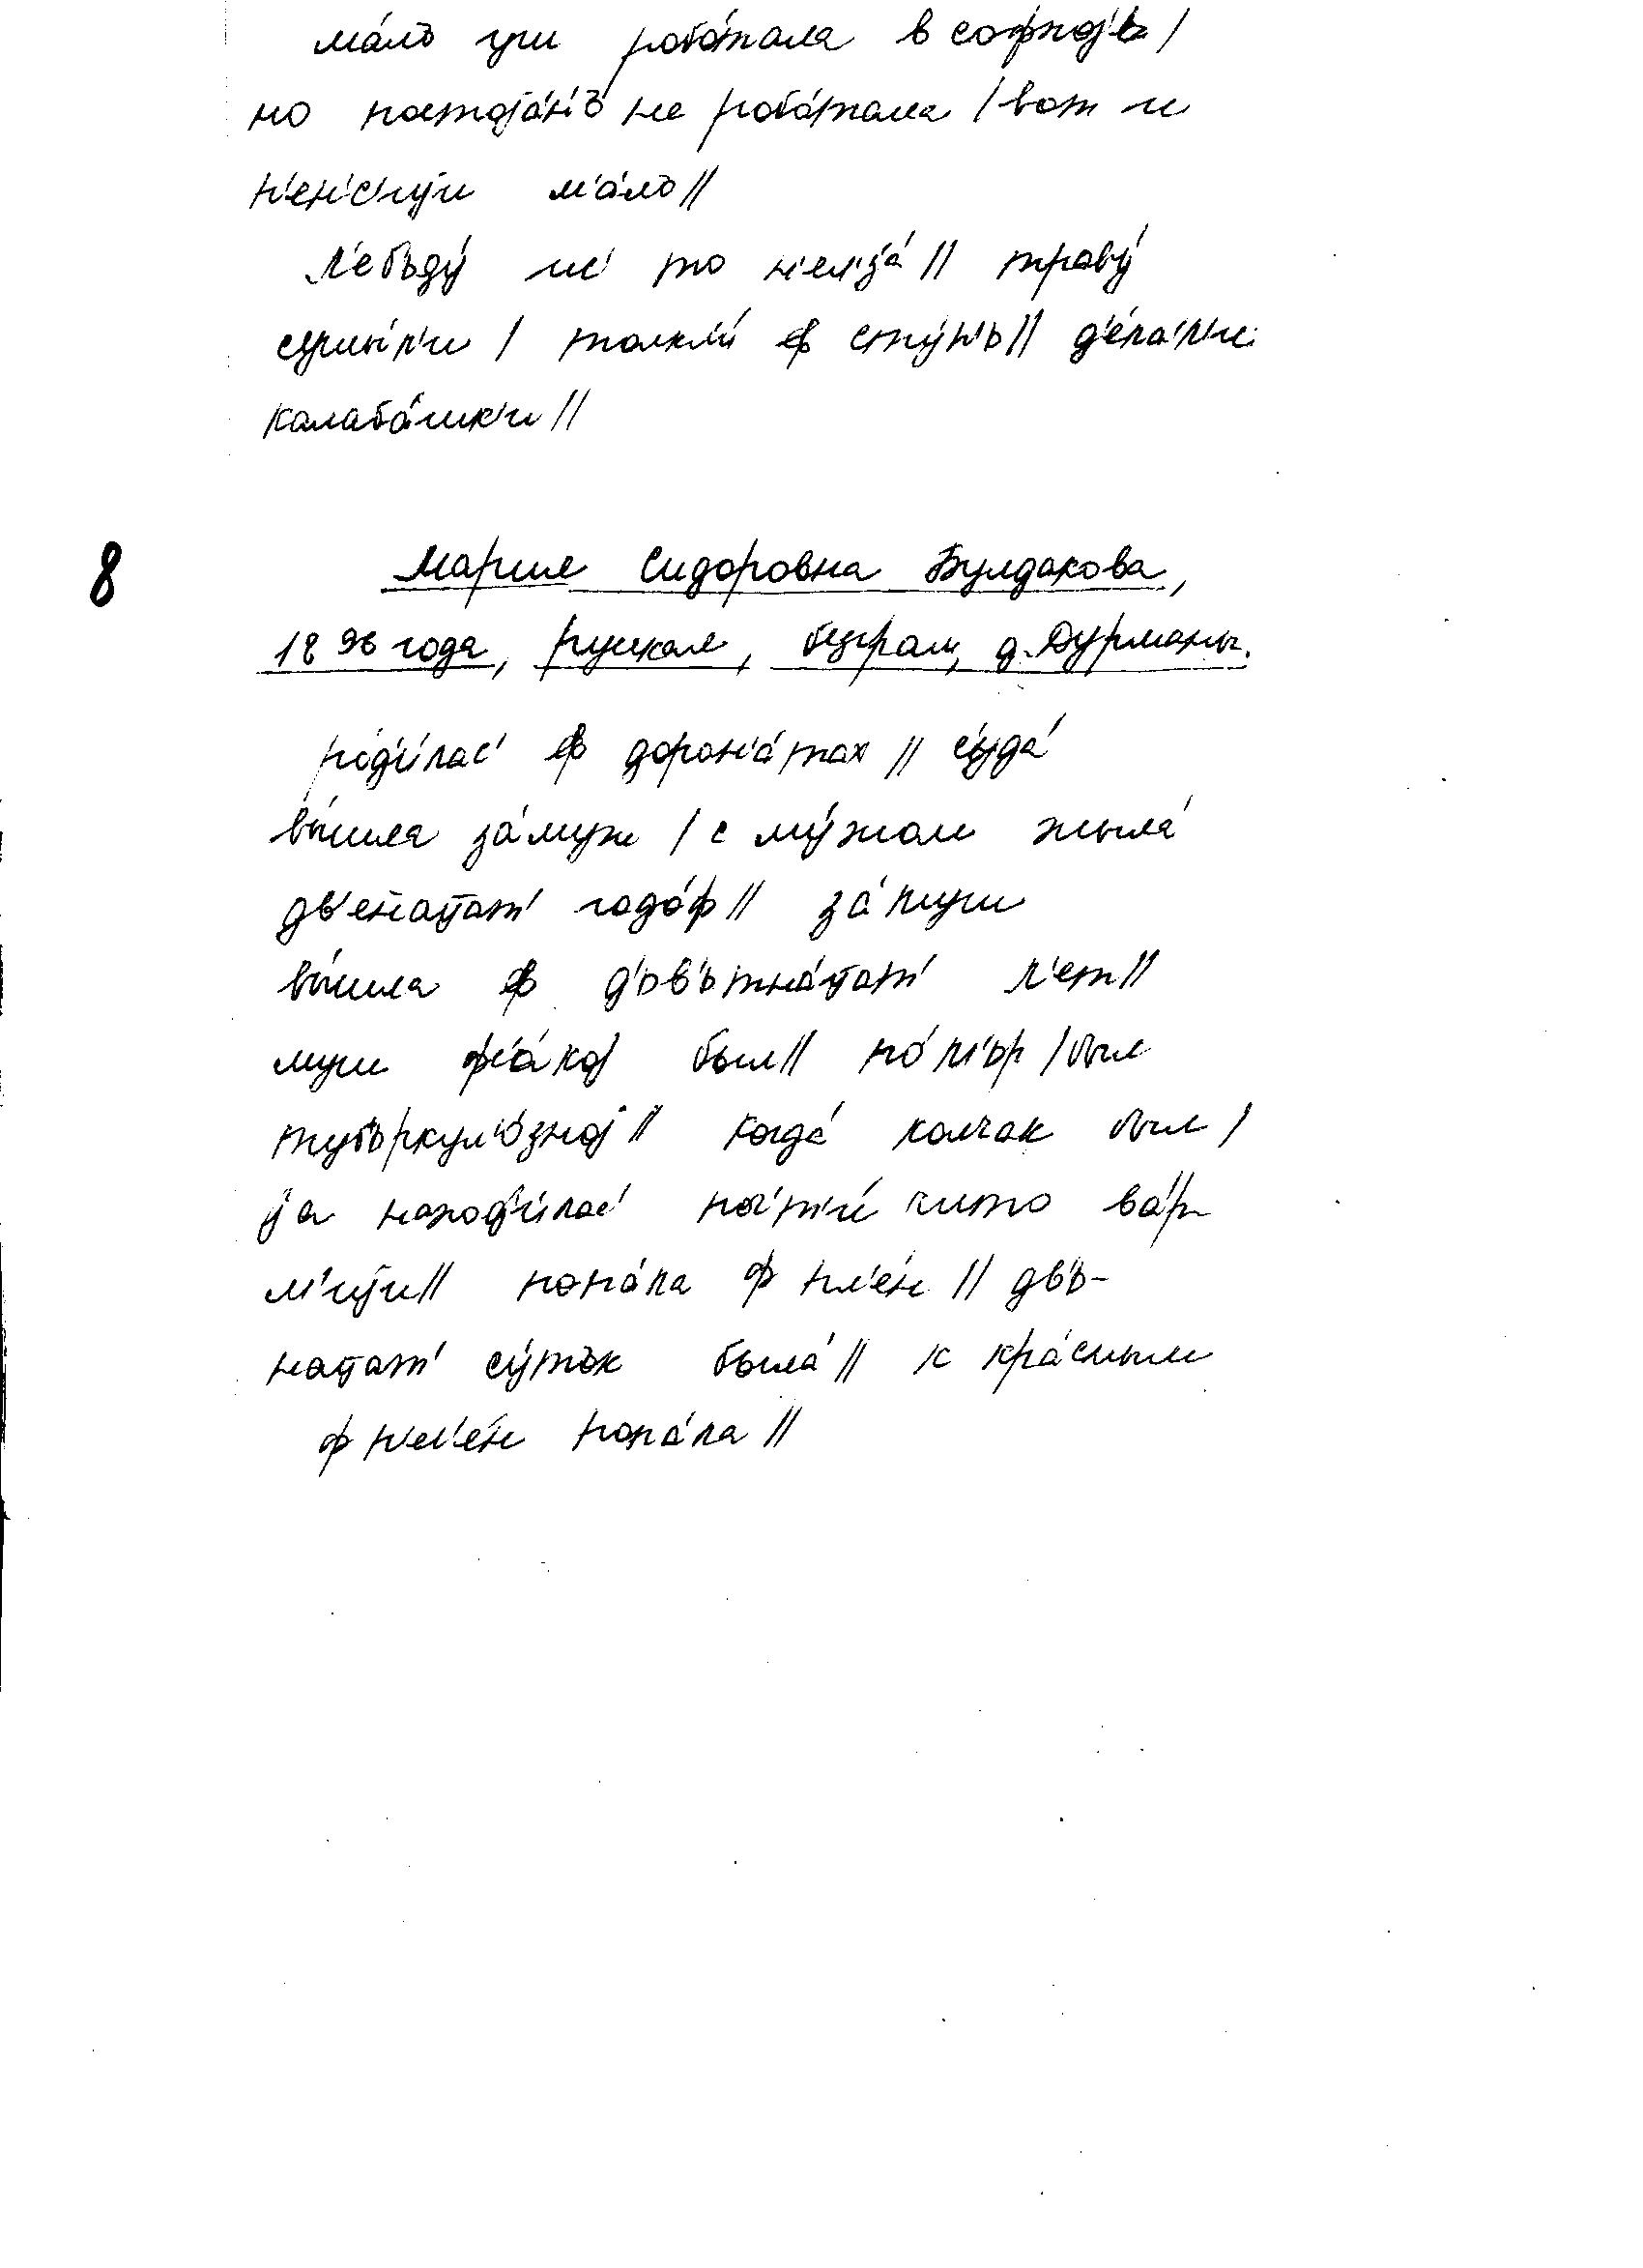 ма́лъ уш рабо́тала в софхо́jь /
но настоjа́н'ъ не рабо́тала / вот и
п'ен'с'иjи ма́лъ //
л'ебъду́ ис' то н'ел'з'а́ // траву́
сушы́л'и / толкл'и́ ф сту́п'ь // д'е́лал'и
калаба́шк'и //
8 Мария Сидоровна Булдакова,
1896 года, русская, безграм, д. Дурманы.
род'и́лас' ф дорон'а́тах // с'уда́
вы́шла за́муж / с му́жом жыла́
дв'ена́цат' годо́ф // за́муш
вы́шла ф д'ьв'ьтна́цат' л'ет //
муш ф'а́коj был // по́м'ьр / был
туб'ьркул'о́зноj // когда́ колчак был /
jа находи́лас' поч'т'и́ што в а́р
м'иjи // попа́ла ф пл'е́н // дв'ь-
нацат' су́тък была́ // к кра́сным
ф пл'е́н попа́ла //